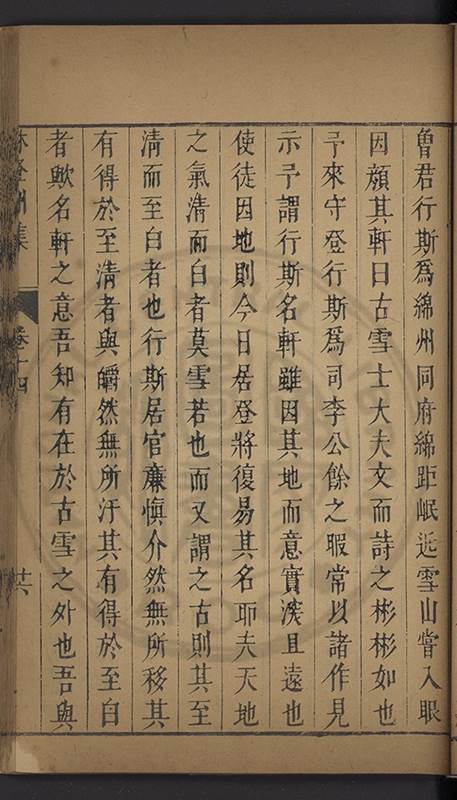 魯君行斯為綿州同府綿距岷近雪山嘗入眼
因顏其軒曰古雪士大夫文而詩之彬彬如也
予來守登行斯為司李公餘之暇常以諸作見
示予謂行斯名軒雖因其地而意實深且遠也
使徒因地則今日居登將復易其名耶夫天地
之氣清而白者莫雪若也而又謂之古則其至
清而至白者也行斯居官廉慎介然無所移其
有得於至清者與皭然無所汙其有得於至白
者歟名軒之意吾知有在於古雪之外也吾與
林登州集 卷十四 廿